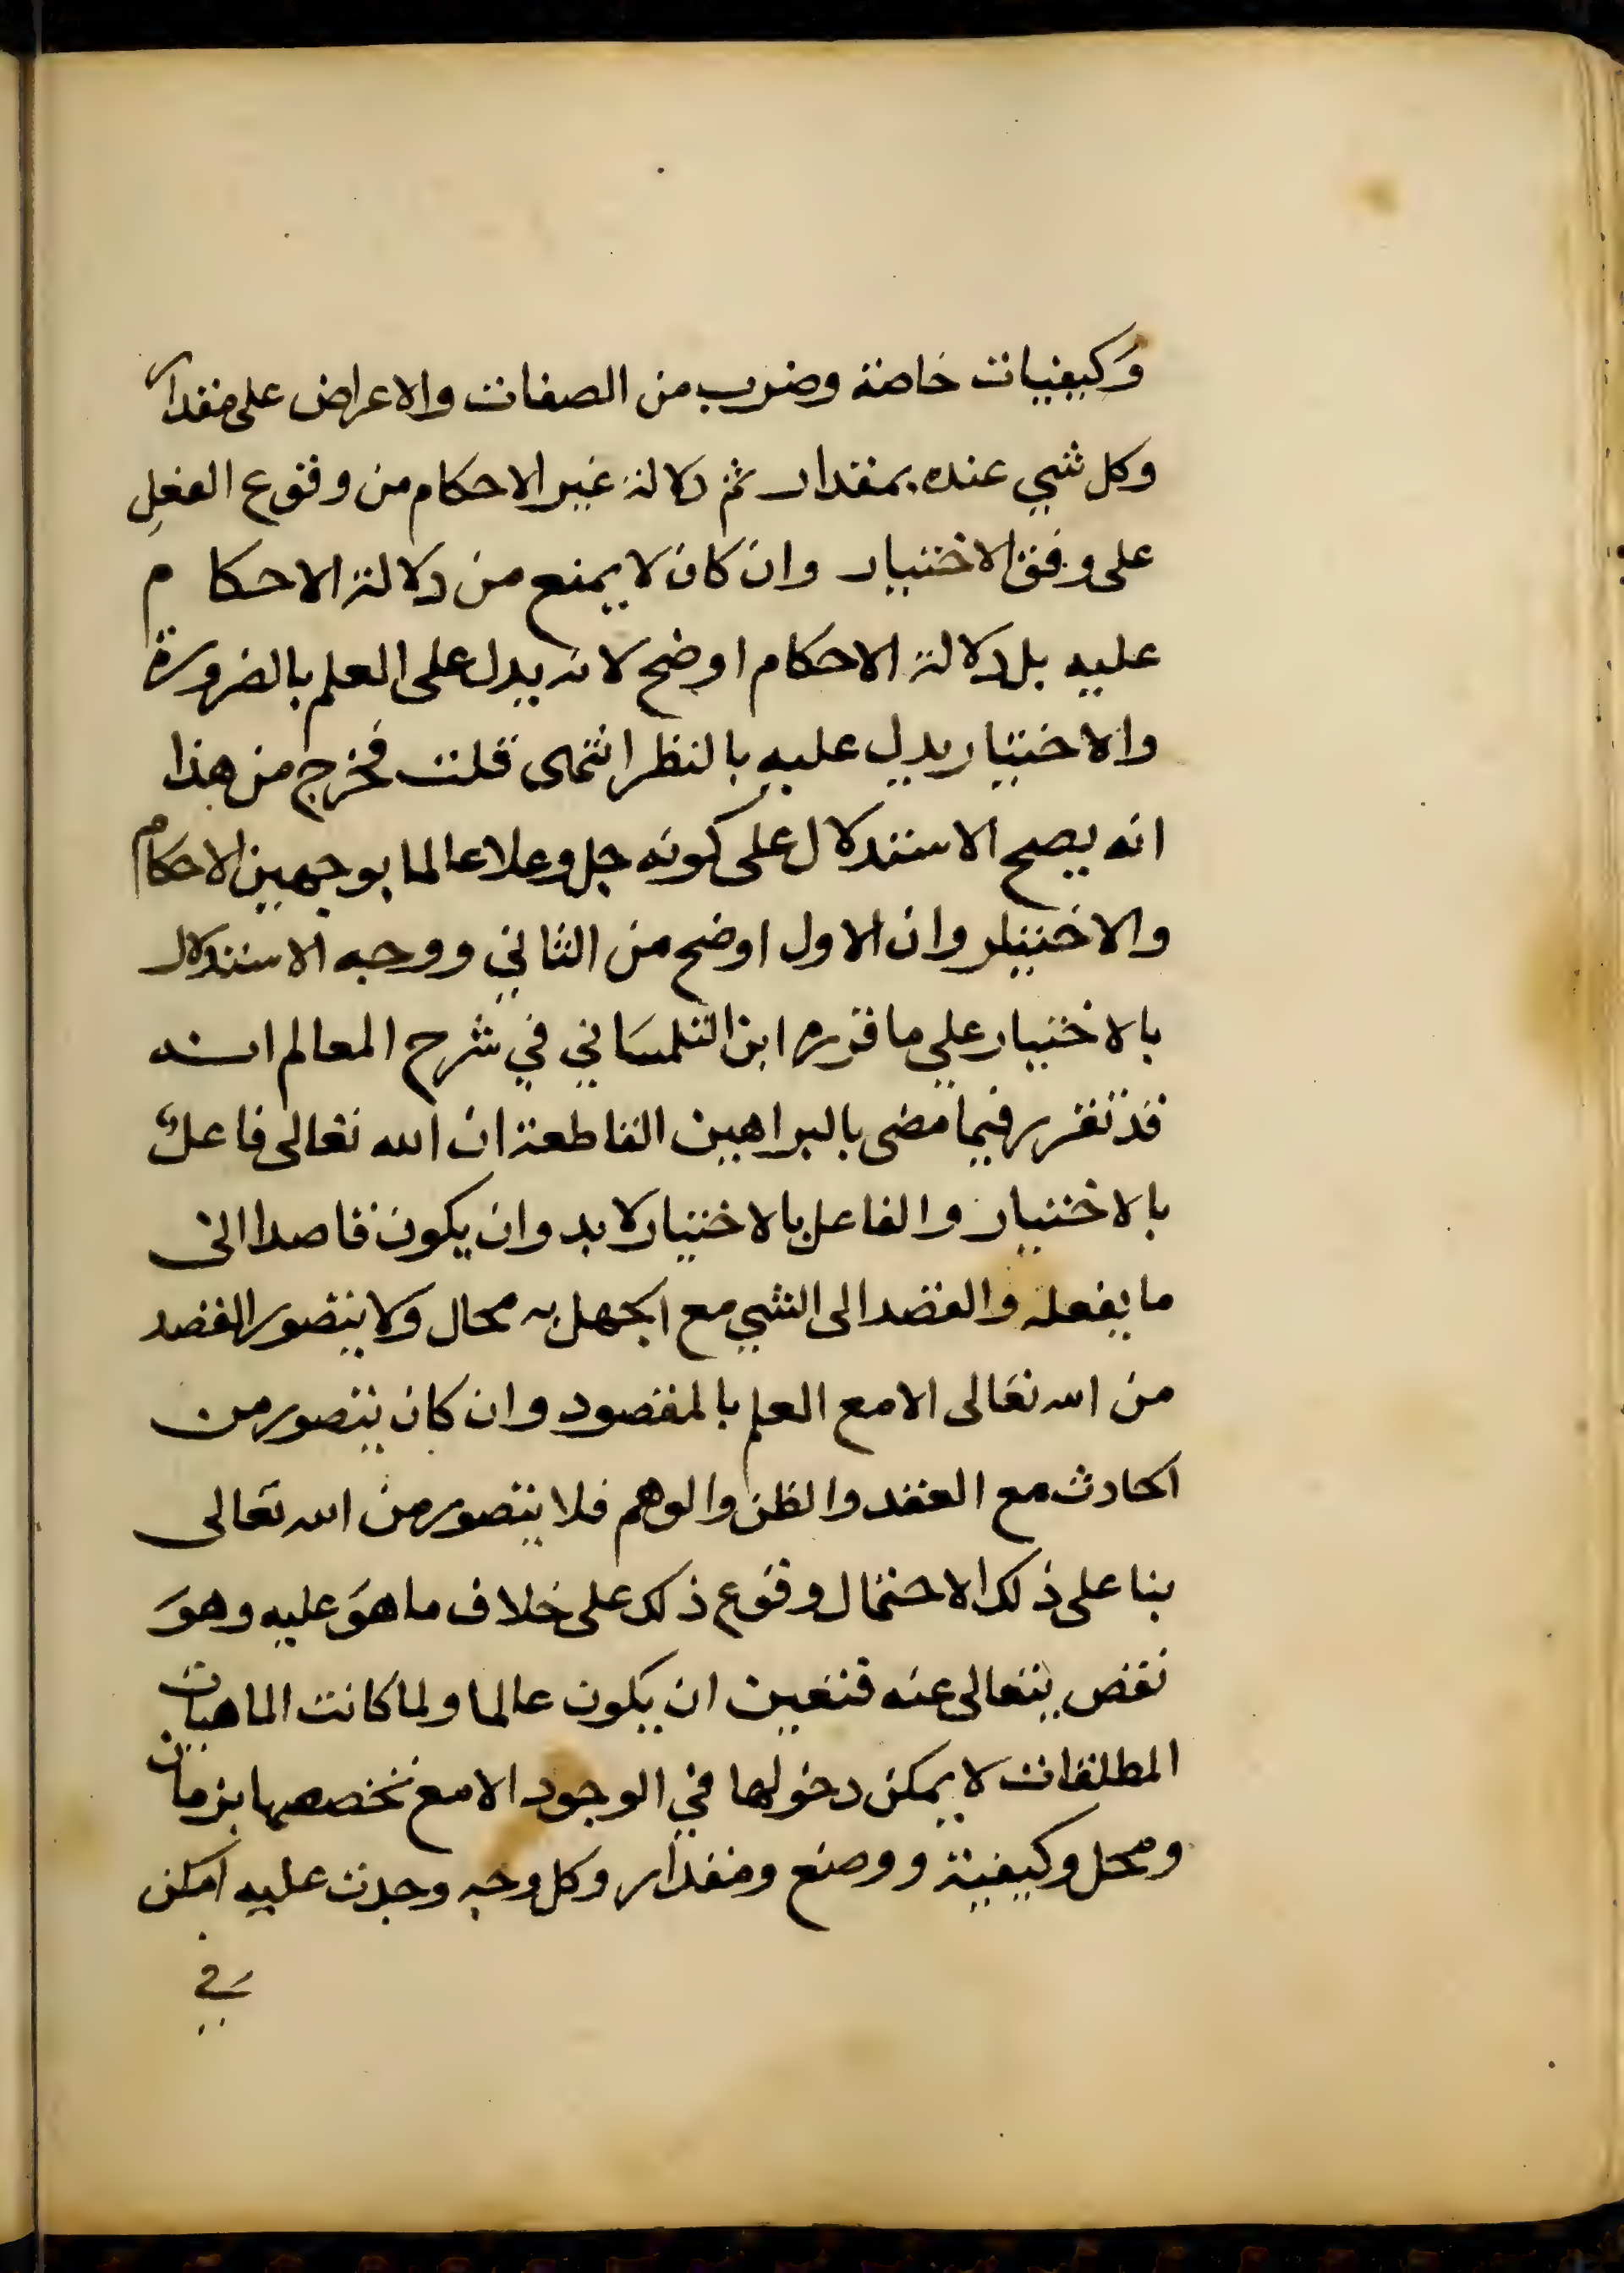 وكيفيات خاصة وضرب من الصفات والاعراض على مقدار
وكل شي عنده بمقدار ثم دلالة غير الاحكام من وقوع الفعل
على وفق الاختيار وان كان لا يمنع من دلالة الاحكام
عليه بل دلالة الاحكام اوضح لانه يدل على العلم بالضرورة
والاختيار يدل عليه بالنظر انتهى قلت فخرج من هذا
انه يصح الاستدلال على كونه جل وعلا عالما بوجهين الاحكام
والاختيار وان الاول اوضح من الثاني ووجه الاستدلال
بالاختيار علي ما قرره ابن التلمساني في شرح المعالم انه
قد تقرر فيما مضى بالبراهين القاطعة ان الله تعالى فاعل
بالاختيار والفاعل بالاختيار لا بد وان يكون قاصدا الى
ما يفعله والقصد الى الشي مع الجهل به محال ولا يتصور القصد
من الله تعالى الا مع العلم بالمقصود وان كان يتصور من
الحادث مع العقد والظن والوهم فلا يتصور من الله تعالى
بنا على ذلك الاحتمال وقوع ذلك على خلاف ما هو عليه وهو
نقص يتعالى عنه فتعين ان يكون عالما ولما كانت الماهيات
المطلقات لا يمكن دخولها في الوجود الا مع تخصصها بزمان
ومحل وكيفية ووضع ومقدار وكل وجه وجدت عليه امكن
في